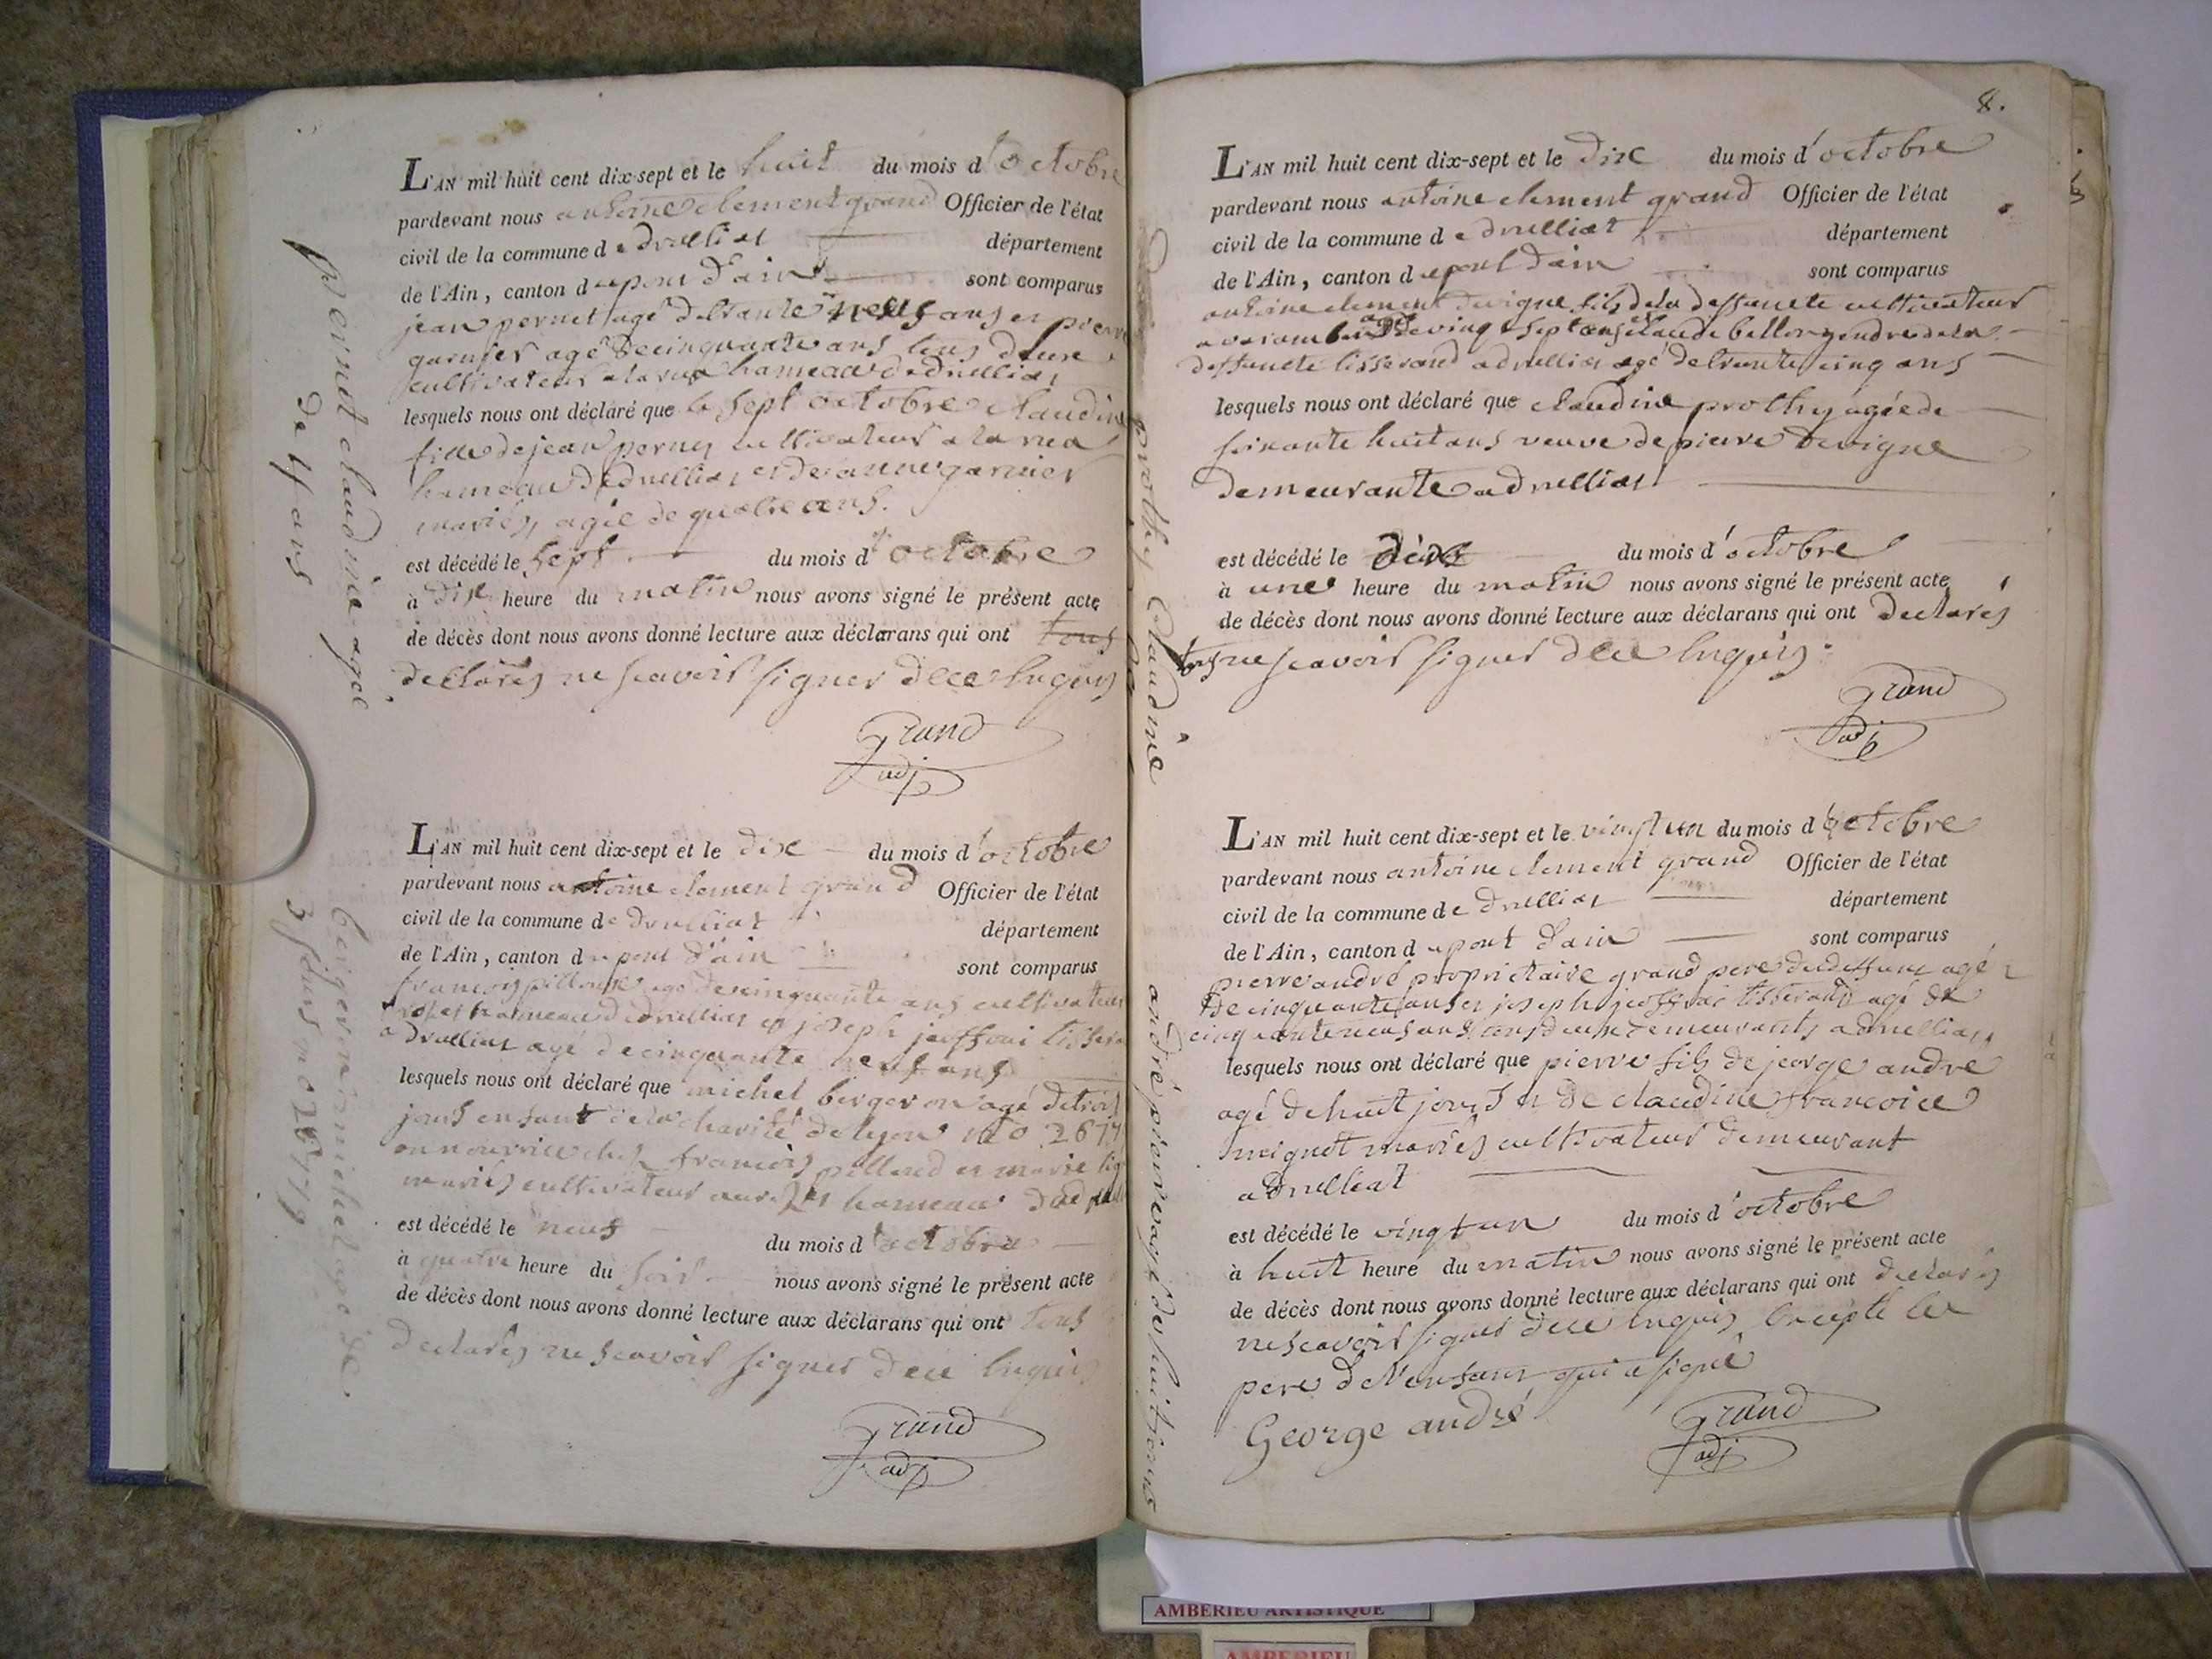 L'AN mil huit cent dix-sept et le huit du mois d'octobre
pardevant nous antoine clement grand Officier de l'état
civil de la commune de druilliat département
de l'Ain, canton du pont d'ain sont comparus
jean pernet agé de trante neuf ans et pierre
garnier agé de cinquante ans tous deux
cultivateur a la rua hameau de druillias
lesquels nous ont déclaré que le sept octobre claudine
fille de jean pernet cultivateur a la rua
hameau de druillias et de janne garnier
mariés, agée de quatre ans.
est décédé le sept du mois d'octobre
à dix heure du matin nous avons signé le présent acte
de décès dont nous avons donné lecture aux déclarans qui ont tous
declarés ne scavoir signer dece enquis
Grand
adj
pernet claudine agée
de 4 ans
L'AN mil huit cent dix-sept et le dix du mois d'octobre
pardevant nous antoine clement grand Officier de l'état
civil de la commune de druilliat département
de l'Ain, canton du pont d'ain sont comparus
françois agé de cinquante ans cultivateur
hameau de druillias et joseph
a druilliat agé de cinquante neuf ans
lesquels nous ont déclaré que michel bergeron agé de trois
jours enfant de la charité de lyon no
en nourrice chez françois et marie
mariés cultivateur hameau
est décédé le neuf du mois d'octobre
à quatre heure du soir nous avons signé le présent acte
de décès dont nous avons donné lecture aux déclarans qui ont tous
declarés ne scavoir signer dece enquis
Grand
adj
bergeron michel agé de
3 jours no
8.
L'AN mil huit cent dix-sept et le dix du mois d'octobre
pardevant nous antoine clement grand Officier de l'état
civil de la commune de druilliat département
de l'Ain, canton du pont d'ain sont comparus
antoine clement devigne fils de la deffuncte cultivateur
agé de vingt sept ans et claude bellon gendre de la
deffuncte tisserand a druillias agé de trante cinq ans
lesquels nous ont déclaré que claudine prothy agée de
soixante huit ans veuve de pierre devigne
demeurante a druillias
est décédé le dix du mois d'octobre
à une heure du matin nous avons signé le présent acte
de décès dont nous avons donné lecture aux déclarans qui ont declarés
tous ne scavoir signer dece enquis
Grand
adj
prothy claudine
L'AN mil huit cent dix-sept et le vingt un du mois d'octobre
pardevant nous antoine clement grand Officier de l'état
civil de la commune de druillias département
de l'Ain, canton du pont d'ain sont comparus
pierre andré propriétaire grand pere du deffunt agé
de cinquante ans et joseph tisserand agé de
cinquante neuf ans tous deux demeurants a druillias
lesquels nous ont déclaré que pierre fils de jeorge andré
agé de huit jours et de claudine françoise
mariés cultivateur demeurant
a druilleat
est décédé le vingt un du mois d'octobre
à huit heure du matin nous avons signé le présent acte
de décès dont nous avons donné lecture aux déclarans qui ont declarés
ne scavoir signer dece enquis excepté le
pere de l'enfant qui a signé
George andré
Grand
adj
andré pierre agé de huit jours
AMBERIEU ARTISTIQUE
AMBERIEU